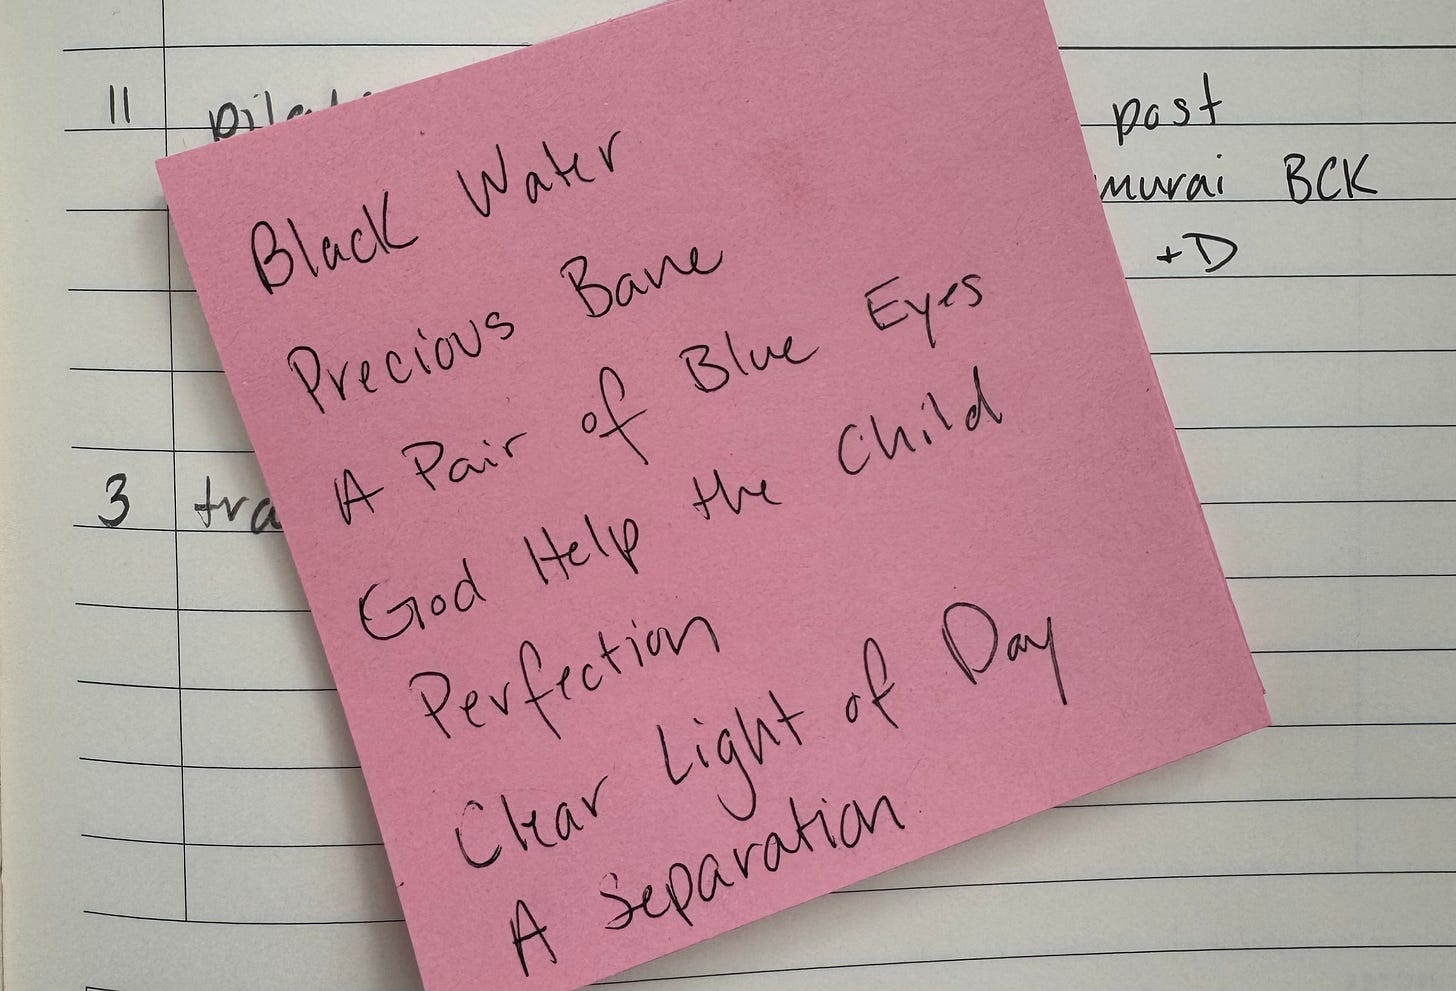 11
post
murai BCK
+D
3
Black Water
Precious Bane
A Pair of Blue Eyes
God Help the Child
Perfection
Clear Light of Day
A Separation